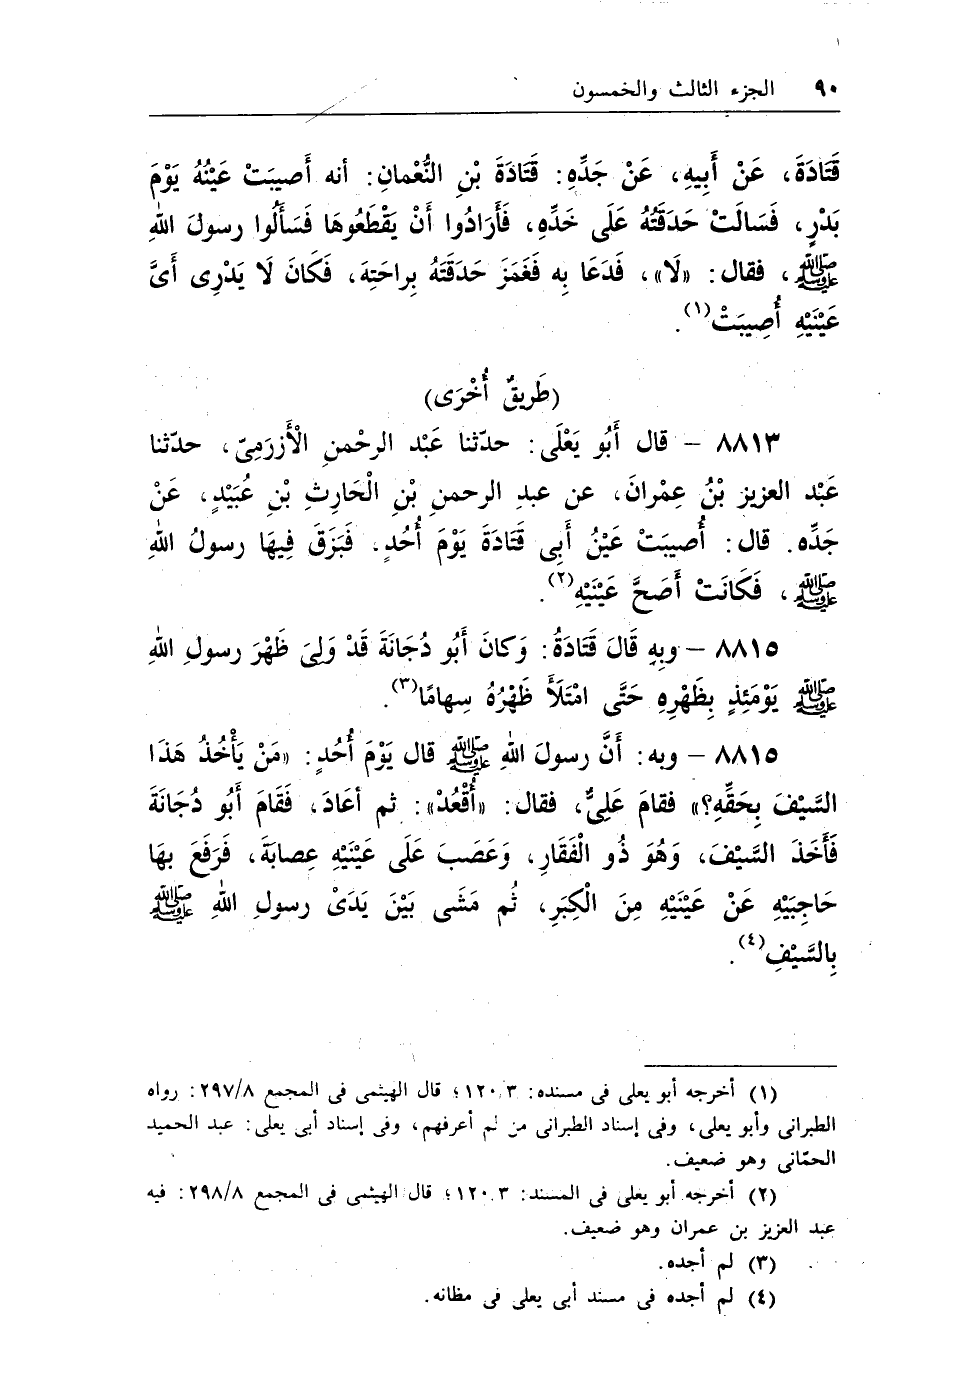 ٩٠ الجزء الثالث والخمسون
قَتَادَةَ، عَنْ أَبِيهِ، عَنْ جَدِّهِ: قَتَادَةَ بْنِ النُّعْمانِ: أنه أُصيبَتْ عَيْنُهُ يَوْمَ
بَدْرٍ، فَسَالَتْ حَدَقَتُهُ عَلَى خَدِّهِ، فَأَرَادُوا أَنْ يَقْطَعُوهَا فَسَأَلُوا رسولَ اللهِ
ﷺ، فقال: «لَا»، فَدَعَا بِه فَغَمَزَ حَدَقَتَهُ بِراحَتِهِ، فَكَانَ لَا يَدْرِى أَىَّ
عَيْنَيْهِ أُصِيبَتْ(١).
(طَرِيقٌ أُخْرَى)
٨٨١٣ – قال أَبُو يَعْلَى: حدّثنا عَبْد الرحْمنِ الْأَزرَمِىّ، حدّثنا
عَبْد العزيز بْنُ عِمْرانَ، عن عبدِ الرحمنِ بْنِ الْحَارِثِ بْنِ عُبَيْدٍ، عَنْ
جَدِّه. قال: أُصيبَتْ عَيْنُ أَبِى قَتَادَةَ يَوْمَ أُحُدٍ، فَبَزَقَ فِيهَا رسولُ اللهِ
ﷺ، فَكَانَتْ أَصَحَّ عَيْنَيْهِ(٢).
٨٨١٥ – وبِهِ قَالَ قَتَادَةُ: وَكانَ أَبُو دُجَانَةَ قَدْ وَلِىَ ظَهْرَ رسولِ اللهِ
ﷺ يَوْمَئِذٍ بِظَهْرِهِ حَتَّى امْتَلَأَ ظَهْرُهُ سِهامًا(٣).
٨٨١٥ – وبه: أَنَّ رسولَ اللهِ ﷺ قال يَوْمَ أُحُدٍ: «مَنْ يَأْخُذُ هَذَا
السَّيْفَ بِحَقِّهِ؟» فقامَ عَلِىٌّ، فقال: «أُقْعُدْ»: ثم أعَادَ، فَقَامَ أَبُو دُجَانَةَ
فَأَخَذَ السَّيْفَ، وَهُوَ ذُو الْفَقَارِ، وَعَصَبَ عَلَى عَيْنَيْهِ عِصابَةَ، فَرَفَعَ بهَا
حَاجِبَيْهِ عَنْ عَيْنَيْهِ مِنَ الْكِبَرِ، ثُم مَشَى بَيْنَ يَدَىْ رسولِ اللهِ ﷺ
بِالسَّيْفِ(٤).
(١) أخرجه أبو يعلى فى مسنده: ١٢٠/٣؛ قال الهيثمى فى المجمع ٢٩٧/٨: رواه
الطبرانى وأبو يعلى، وفى إسناد الطبرانى من لم أعرفهم، وفى إسناد أبى يعلى: عبد الحميد
الحمّانى وهو ضعيف.
(٢) أخرجه أبو يعلى فى المسند: ١٢٠/٣؛ قال الهيثمى فى المجمع ٢٩٨/٨: فيه
عبد العزيز بن عمران وهو ضعيف.
(٣) لم أجده.
(٤) لم أجده فى مسند أبى يعلى فى مظانه.